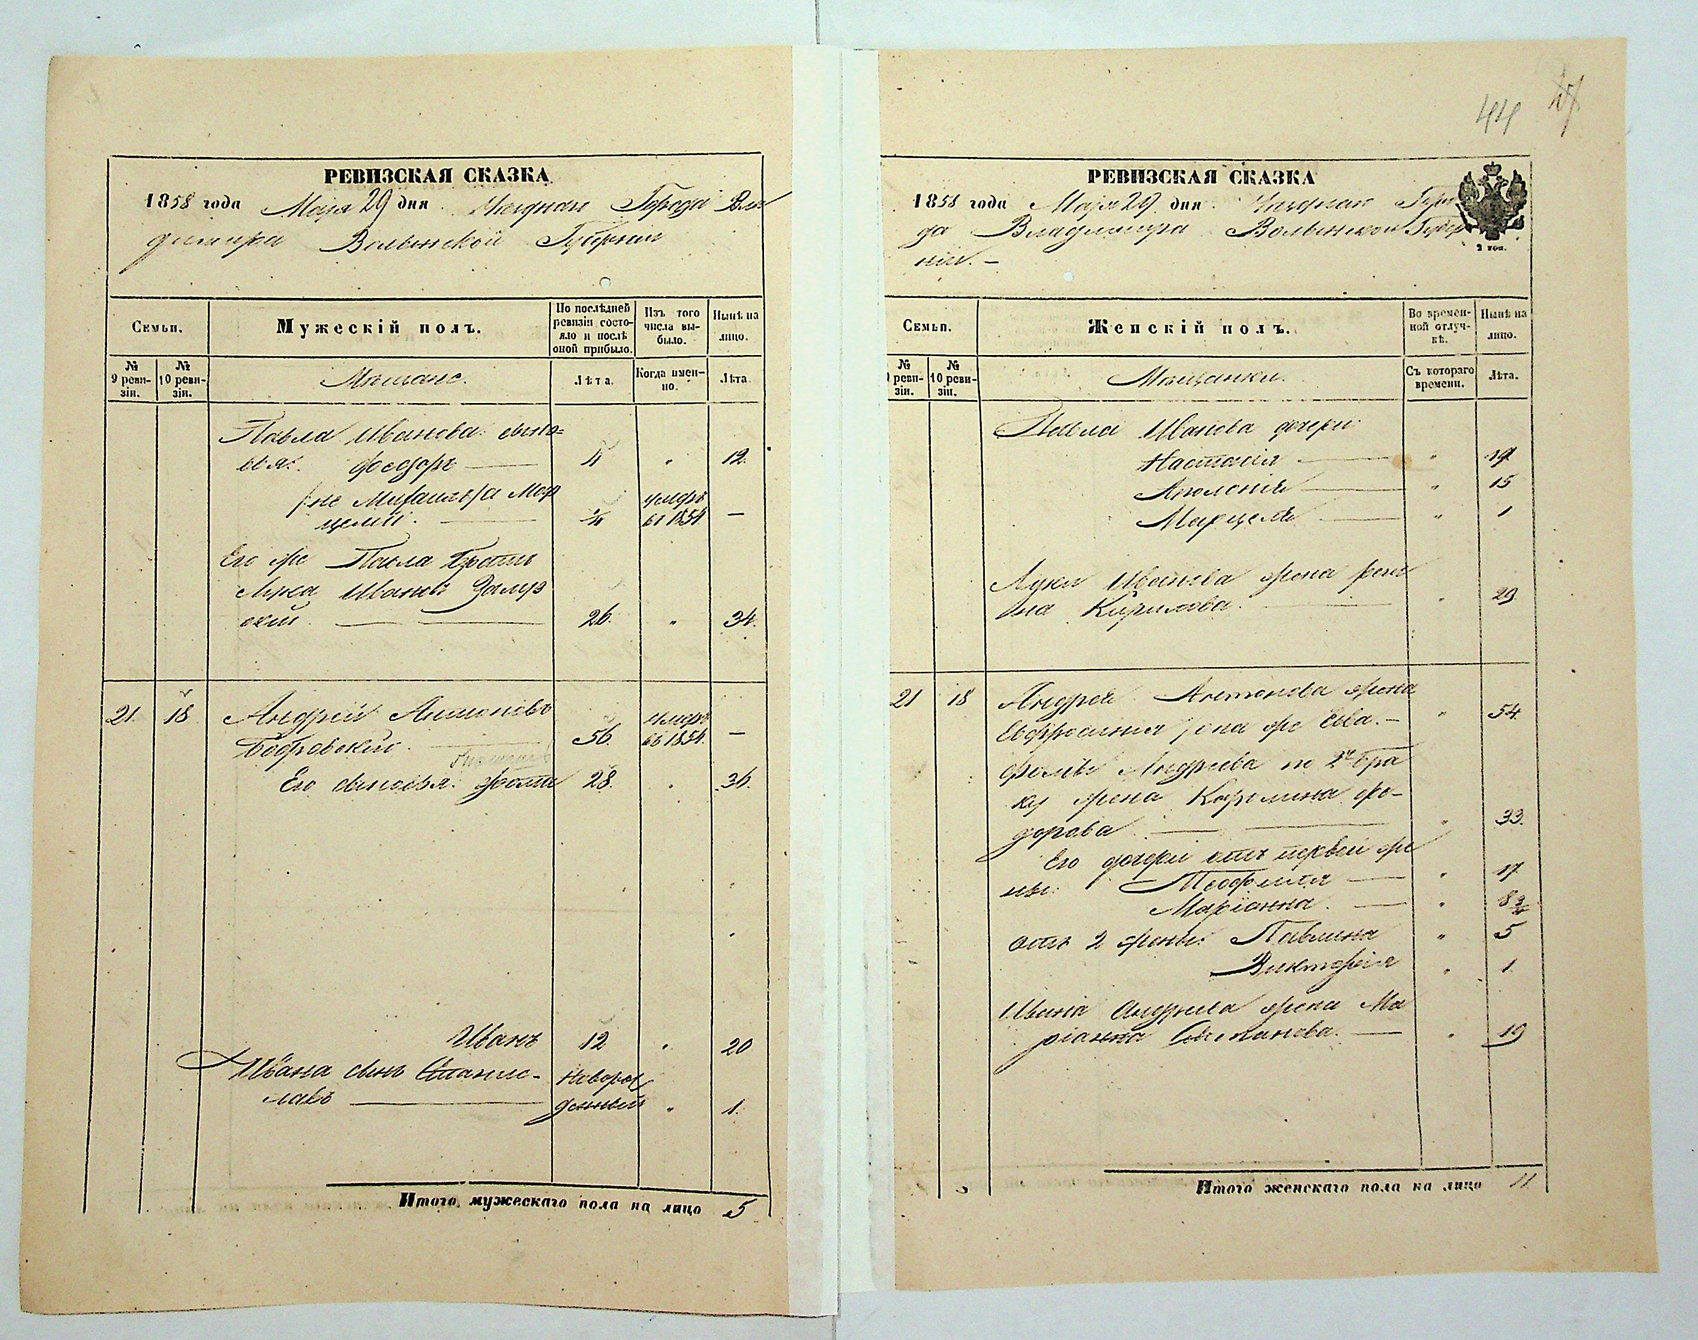 44 27
РЕВИЗСКАЯ СКАЗКА
1858 года Мая 29 дня Мещнан Города Вла
димира Волынской Губернии
Семьи.
Мужескій полъ.
По послѣдней ревизіи состояло и послѣ оной прибыло.
Изъ того числа выбыло.
Нынѣ на лицо.
№ 9 ревизіи.
№ 10 ревизіи.
Мѣщане.
Лѣта.
Когда именно.
Лѣта.
Павла Иванова сыно=
вья: Феодоръ 4 " 12.
/не Михаилъ/а Мар
целій. 1/4 умеръ въ 1854 —
Его же Павла братъ
Лука Ивановъ Залуз
скій. 26. " 34.
21. 18 Андрей Антоновъ
Бобровскій. 56. умеръ въ 1854. —
Его сыновья: Фома 28. " 36.
Иванъ 12 " 20
Ивана сынъ Станис-
лавъ новорожденный " 1.
Итого мужескаго пола на лицо 5
РЕВИЗСКАЯ СКАЗКА
1858 года Мая 29 дня Мещнан Горо
да Владимира Волынской Губер
ніи. —
2 коп.
Семьи.
Женскій полъ.
Во временной отлучкѣ.
Нынѣ на лицо.
№ 9 ревизіи.
№ 10 ревизіи.
Мѣщанки.
Съ котораго времени.
Лѣта.
Павла Иванова дочери:
Настасія " 19
Аполонія " 15
Марцеля " 1
Луки Иванова жена
Кирилова. " 29.
21 18 Андрея Антонова жена
Евфросинія /она же Ева. — " 54.
Фомы Андреева по 2му бра
ку жена Каролина Фе-
дорова " 33.
Его дочери отъ первой же
ны: Теофилія " 17
Маріанна. " 8 3/4
отъ 2 жены: Павлина " 5
Викторія " 1.
Ивана Андреева жена Ма
ріанна Степанова. " 19
Итого женскаго пола на лицо 11